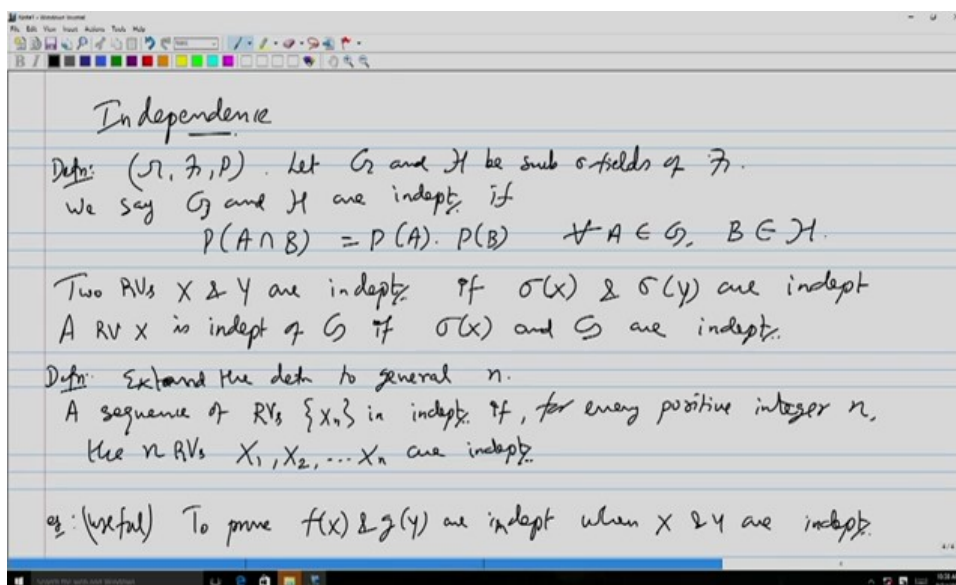 File Edit View Insert Actions Tools Help
B I
Independence
Defn: (Ω, F, P). Let G and H be sub σ-fields of F.
We say G and H are indept. if
P(A ∩ B) = P(A). P(B) ∀ A ∈ G, B ∈ H.
Two RVs X & Y are indept. if σ(X) & σ(Y) are indept
A RV X is indept of G if σ(X) and G are indept.
Defn: Extend the defn to general n.
A sequence of RVs {Xn} is indept. if, for every positive integer n,
the n RVs X1, X2, ... Xn are indept.
eg: (useful) To prove f(X) & g(Y) are indept when X & Y are indept.
4/4